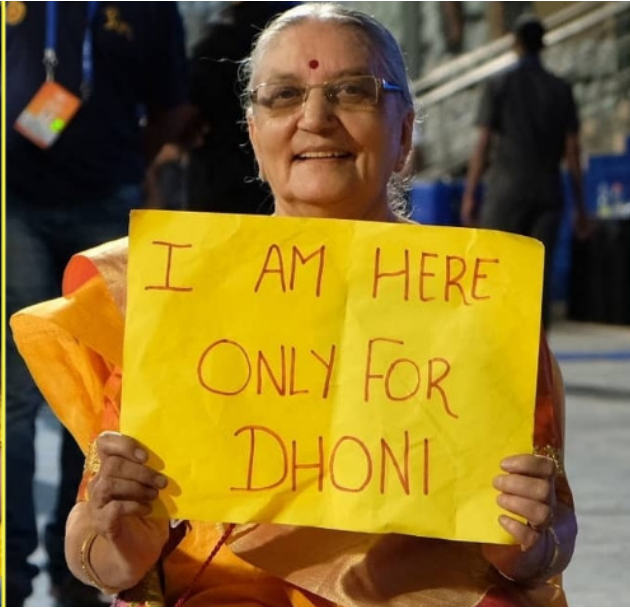 I AM HERE
ONLY FOR
DHONI